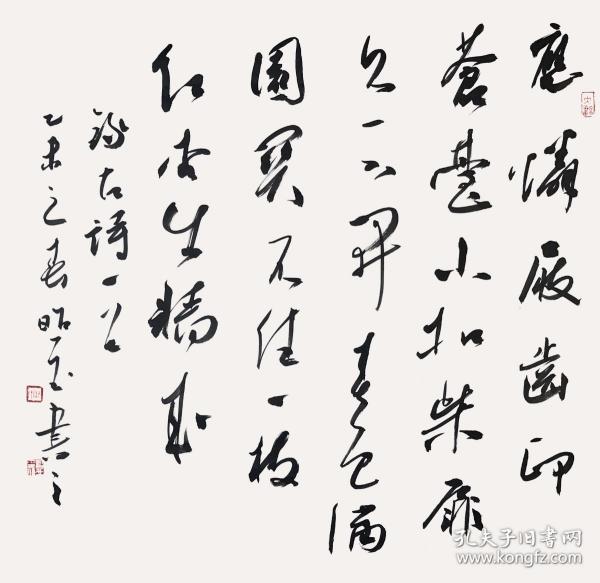 應憐屐齒印
蒼苔小扣柴扉
久不開春色滿
園関不住一枝
紅杏出牆來
錄古詩一首
乙未之春昭玉書之
孔夫子旧书网
www.kongfz.com